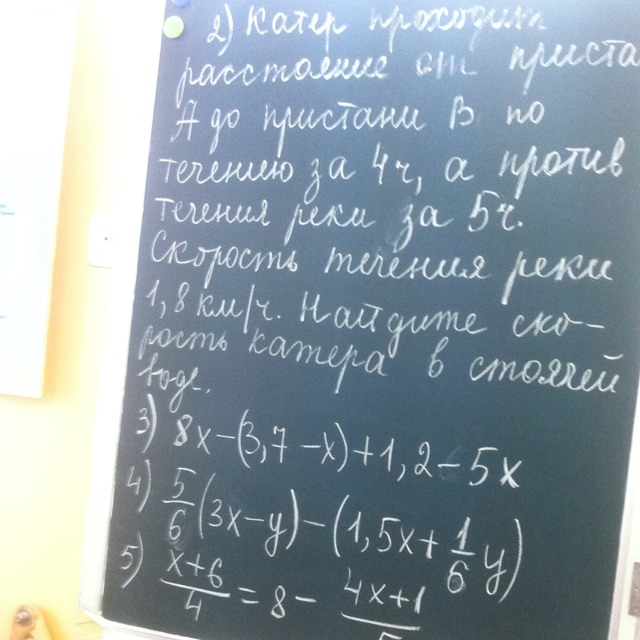 2) Катер проходит
расстояние от приста
А до пристани В по
течению за 4ч, а против
течения реки за 5ч.
Скорость течения реки
1,8 км/ч. Найдите ско-
рость катера в стоячей
воде.
3) 8x-(3,7-x)+1,2-5x
4) 5/6(3x-y)-(1,5x+1/6y)
5) x+6/4=8-4x+1/5